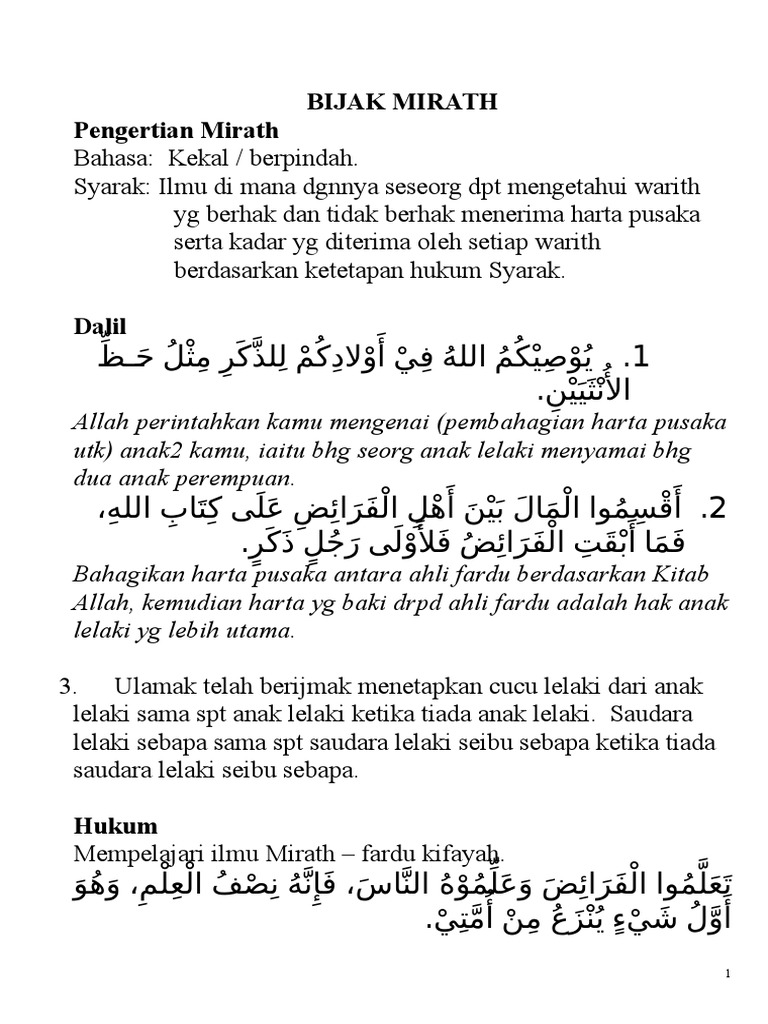 BIJAK MIRATH
Pengertian Mirath
Bahasa: Kekal / berpindah.
Syarak: Ilmu di mana dgnnya seseorg dpt mengetahui warith
yg berhak dan tidak berhak menerima harta pusaka
serta kadar yg diterima oleh setiap warith
berdasarkan ketetapan hukum Syarak.
Dalil
1. يُوْصِيْكُمُ اللهُ فِيْ أَوْلادِكُمْ لِلذَّكَرِ مِثْلُ حَـظِّ
الأُنْثَيَيْنِ.
Allah perintahkan kamu mengenai (pembahagian harta pusaka
utk) anak2 kamu, iaitu bhg seorg anak lelaki menyamai bhg
dua anak perempuan.
2. أَقْسِمُوا الْمَالَ بَيْنَ أَهْلِ الْفَرَائِضِ عَلَى كِتَابِ اللهِ،
فَمَا أَبْقَتِ الْفَرَائِضُ فَلأَوْلَى رَجُلٍ ذَكَرٍ.
Bahagikan harta pusaka antara ahli fardu berdasarkan Kitab
Allah, kemudian harta yg baki drpd ahli fardu adalah hak anak
lelaki yg lebih utama.
3. Ulamak telah berijmak menetapkan cucu lelaki dari anak
lelaki sama spt anak lelaki ketika tiada anak lelaki. Saudara
lelaki sebapa sama spt saudara lelaki seibu sebapa ketika tiada
saudara lelaki seibu sebapa.
Hukum
Mempelajari ilmu Mirath – fardu kifayah.
تَعَلَّمُوا الْفَرَائِضَ وَعَلِّمُوْهُ النَّاسَ، فَإِنَّهُ نِصْفُ الْعِلْمِ، وَهُوَ
أَوَّلُ شَيْءٍ يُنْزَعُ مِنْ أُمَّتِيْ.
1